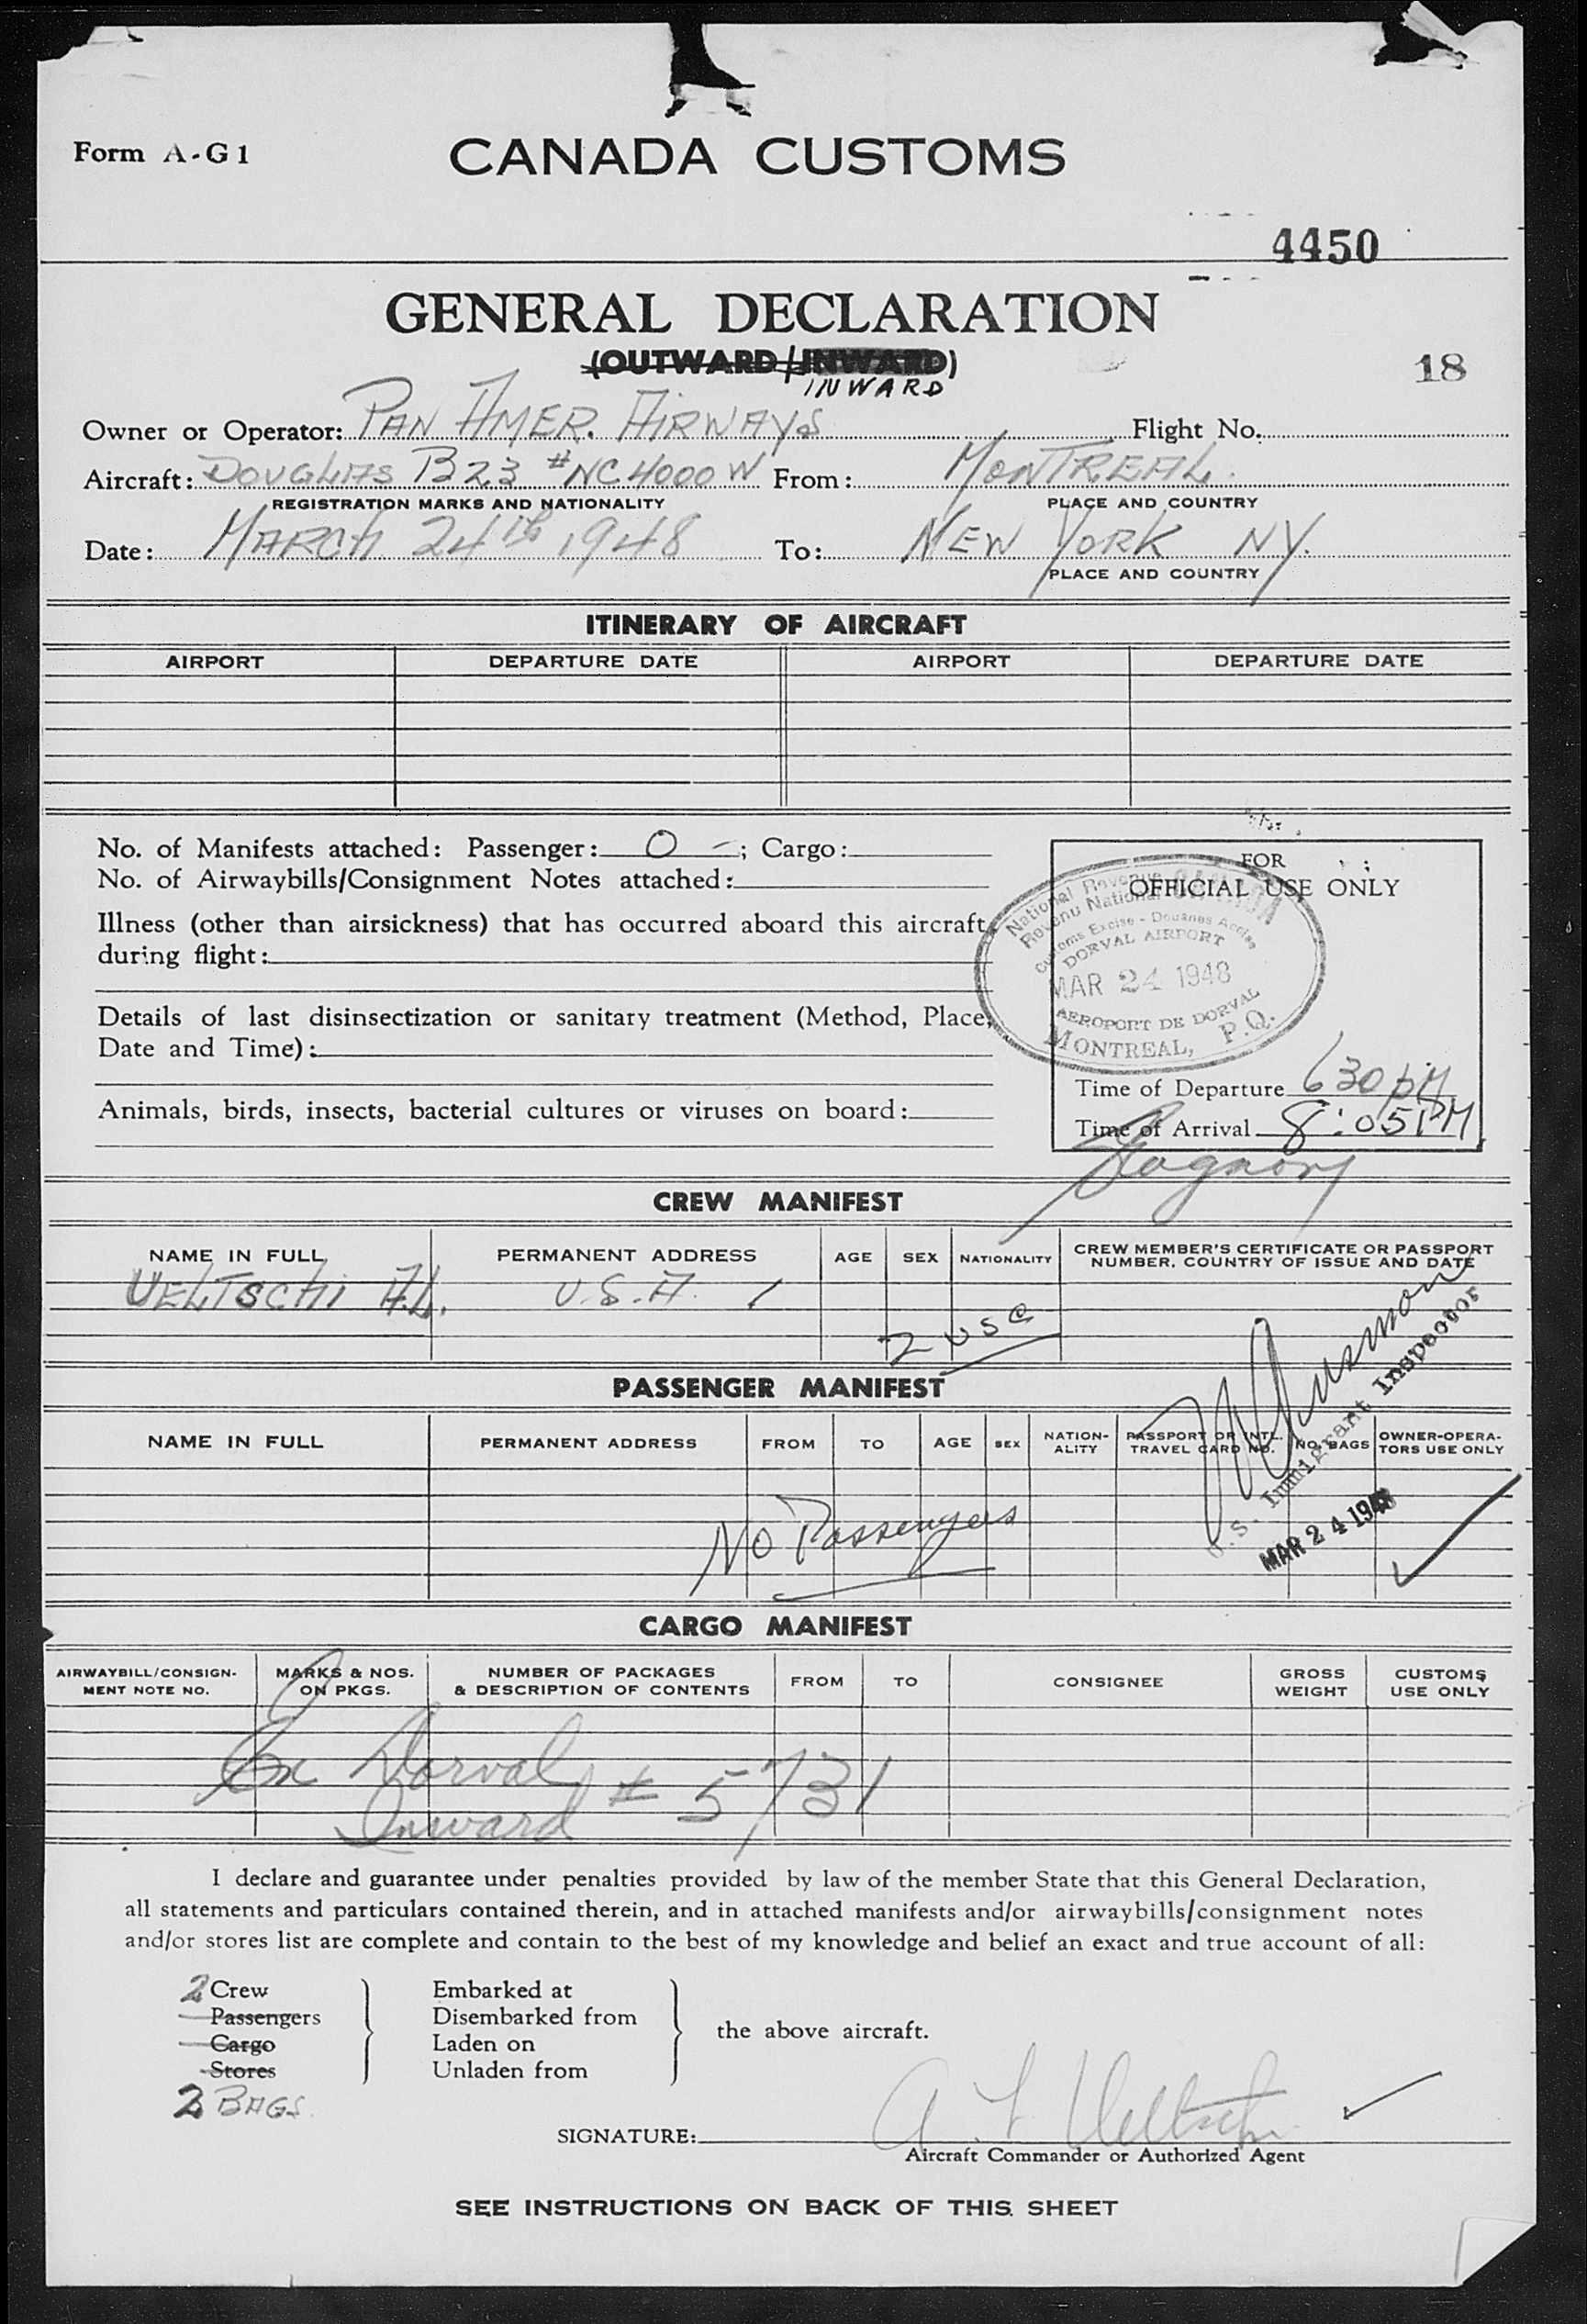 Form A-G1
CANADA CUSTOMS
4450
GENERAL DECLARATION
(OUTWARD/INWARD)
INWARD
18
Owner or Operator: PAN AMER. AIRWAYS Flight No.
Aircraft: DOUGLAS B23 #NC4000W From: MONTREAL.
REGISTRATION MARKS AND NATIONALITY PLACE AND COUNTRY
Date: MARCH 24th 1948 To: NEW YORK NY.
PLACE AND COUNTRY
ITINERARY OF AIRCRAFT
AIRPORT DEPARTURE DATE AIRPORT DEPARTURE DATE
No. of Manifests attached: Passenger: 0 -; Cargo:
No. of Airwaybills/Consignment Notes attached:
Illness (other than airsickness) that has occurred aboard this aircraft
during flight:
Details of last disinsectization or sanitary treatment (Method, Place,
Date and Time):
Animals, birds, insects, bacterial cultures or viruses on board:
FOR
OFFICIAL USE ONLY
National Revenue CANADA
Revenu National
Customs Excise - Douanes Accise
DORVAL AIRPORT
MAR 24 1948
AEROPORT DE DORVAL
MONTREAL, P.Q.
Time of Departure 630 PM
Time of Arrival 8:05 PM
CREW MANIFEST
NAME IN FULL PERMANENT ADDRESS AGE SEX NATIONALITY CREW MEMBER'S CERTIFICATE OR PASSPORT
NUMBER, COUNTRY OF ISSUE AND DATE
UELTSCHI A.L. U.S.A. /
2 USC
U.S. Immigrant Inspector
MAR 24 1948
PASSENGER MANIFEST
NAME IN FULL PERMANENT ADDRESS FROM TO AGE SEX NATION-
ALITY PASSPORT OR INTL.
TRAVEL CARD NO. NO. BAGS OWNER-OPERA-
TORS USE ONLY
No Passengers
CARGO MANIFEST
AIRWAYBILL/CONSIGN-
MENT NOTE NO. MARKS & NOS.
ON PKGS. NUMBER OF PACKAGES
& DESCRIPTION OF CONTENTS FROM TO CONSIGNEE GROSS
WEIGHT CUSTOMS
USE ONLY
Ex Dorval
Inward # 5731
I declare and guarantee under penalties provided by law of the member State that this General Declaration,
all statements and particulars contained therein, and in attached manifests and/or airwaybills/consignment notes
and/or stores list are complete and contain to the best of my knowledge and belief an exact and true account of all:
2 Crew Embarked at
Passengers Disembarked from
Cargo Laden on
Stores Unladen from
the above aircraft.
2 BAGS
SIGNATURE: A. L. Ueltschi
Aircraft Commander or Authorized Agent
SEE INSTRUCTIONS ON BACK OF THIS SHEET